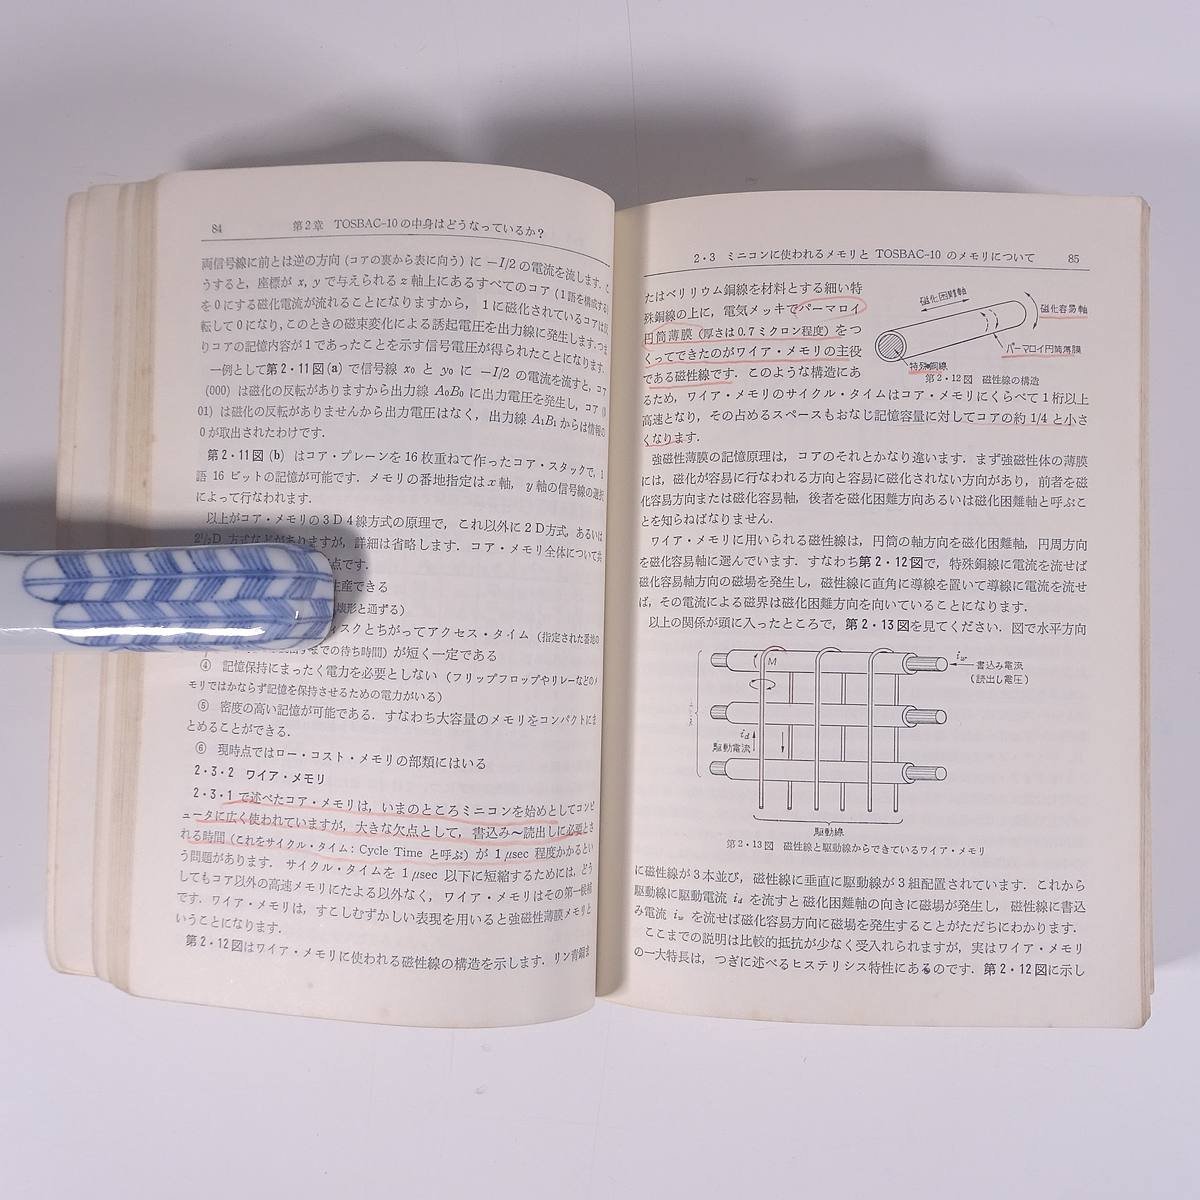 84 第2章 TOSBAC-10の中身はどうなっているか?
両信号線に前とは逆の方向(コアの裏から表に向う)に −I/2 の電流を流します.
うすると,座標が x, y で与えられる z 軸上にあるすべてのコア(1語を構成する)
を0にする磁化電流が流れることになりますから,1に磁化されているコアは
転して0になり,このときの磁束変化による誘起電圧を出力線に発生します.つま
りコアの記憶内容が1であったことを示す信号電圧が得られたことになります.
一例として第2・11図(a)で信号線 x₀ と y₀ に −I/2 の電流を流すと,コア
(000) は磁化の反転がありますから出力線 A₀B₀ に出力電圧を発生し,コア(0
01) は磁化の反転がありませんから出力電圧はなく,出力線 A₁B₁ からは情報の
0が取出されたわけです.
第2・11図(b) はコア・プレーンを16枚重ねて作ったコア・スタックで,1
語 16 ビットの記憶が可能です.メモリの番地指定は x 軸,y 軸の信号線の選択
によって行なわれます.
以上がコア・メモリの3D4線方式の原理で,これ以外に2D方式,あるいは
2½D 方式などがありますが,詳細は省略します.コア・メモリ全体について
点です.
生産できる
壊形と通ずる)
ィスクとちがってアクセス・タイム(指定された番地の
までの待ち時間)が短く一定である
④ 記憶保持にまったく電力を必要としない(フリップフロップやリレーなどのメ
モリではかならず記憶を保持させるための電力がいる)
⑤ 密度の高い記憶が可能である.すなわち大容量のメモリをコンパクトにま
とめることができる.
⑥ 現時点ではロー・コスト・メモリの部類にはいる
2・3・2 ワイア・メモリ
2・3・1で述べたコア・メモリは,いまのところミニコンを始めとしてコンピ
ュータに広く使われていますが,大きな欠点として,書込み〜読出しに必要とさ
れる時間(これをサイクル・タイム:Cycle Time と呼ぶ)が 1 μsec 程度かかるとい
う問題があります.サイクル・タイムを 1 μsec 以下に短縮するためには,どう
してもコア以外の高速メモリにたよる以外なく,ワイア・メモリはその第一候補
です.ワイア・メモリは,すこしむずかしい表現を用いると強磁性薄膜メモリと
いうことになります.
第2・12図はワイア・メモリに使われる磁性線の構造を示します.リン青銅ま
2・3 ミニコンに使われるメモリと TOSBAC-10 のメモリについて 85
たはベリリウム銅線を材料とする細い特
殊銅線の上に,電気メッキでパーマロイ
円筒薄膜(厚さは0.7ミクロン程度)をつ
くってできたのがワイア・メモリの主役
である磁性線です.このような構造にあ
磁化困難軸
磁化容易軸
パーマロイ円筒薄膜
特殊銅線
第2・12図 磁性線の構造
るため,ワイア・メモリのサイクル・タイムはコア・メモリにくらべて1桁以上
高速となり,その占めるスペースもおなじ記憶容量に対してコアの約 1/4 と小さ
くなります.
強磁性薄膜の記憶原理は,コアのそれとかなり違います.まず強磁性体の薄膜
には,磁化が容易に行なわれる方向と容易に磁化されない方向があり,前者を磁
化容易方向または磁化容易軸,後者を磁化困難方向あるいは磁化困難軸と呼ぶこ
とを知らねばなりません.
ワイア・メモリに用いられる磁性線は,円筒の軸方向を磁化困難軸,円周方向
を磁化容易軸に選んでいます.すなわち第2・12図で,特殊銅線に電流を流せば
磁化容易軸方向の磁場を発生し,磁性線に直角に導線を置いて導線に電流を流せ
ば,その電流による磁界は磁化困難方向を向いていることになります.
以上の関係が頭に入ったところで,第2・13図を見てください.図で水平方向
M
i_w 書込み電流
(読出し電圧)
i_d
駆動電流
駆動線
第2・13図 磁性線と駆動線からできているワイア・メモリ
に磁性線が3本並び,磁性線に垂直に駆動線が3組配置されています.これから
駆動線に駆動電流 i_d を流すと磁化困難軸の向きに磁場が発生し,磁性線に書込
み電流 i_w を流せば磁化容易方向に磁場を発生することがただちにわかります.
ここまでの説明は比較的抵抗が少なく受入れられますが,実はワイア・メモリ
の一大特長は,つぎに述べるヒステリシス特性にあるのです.第2・12図に示し